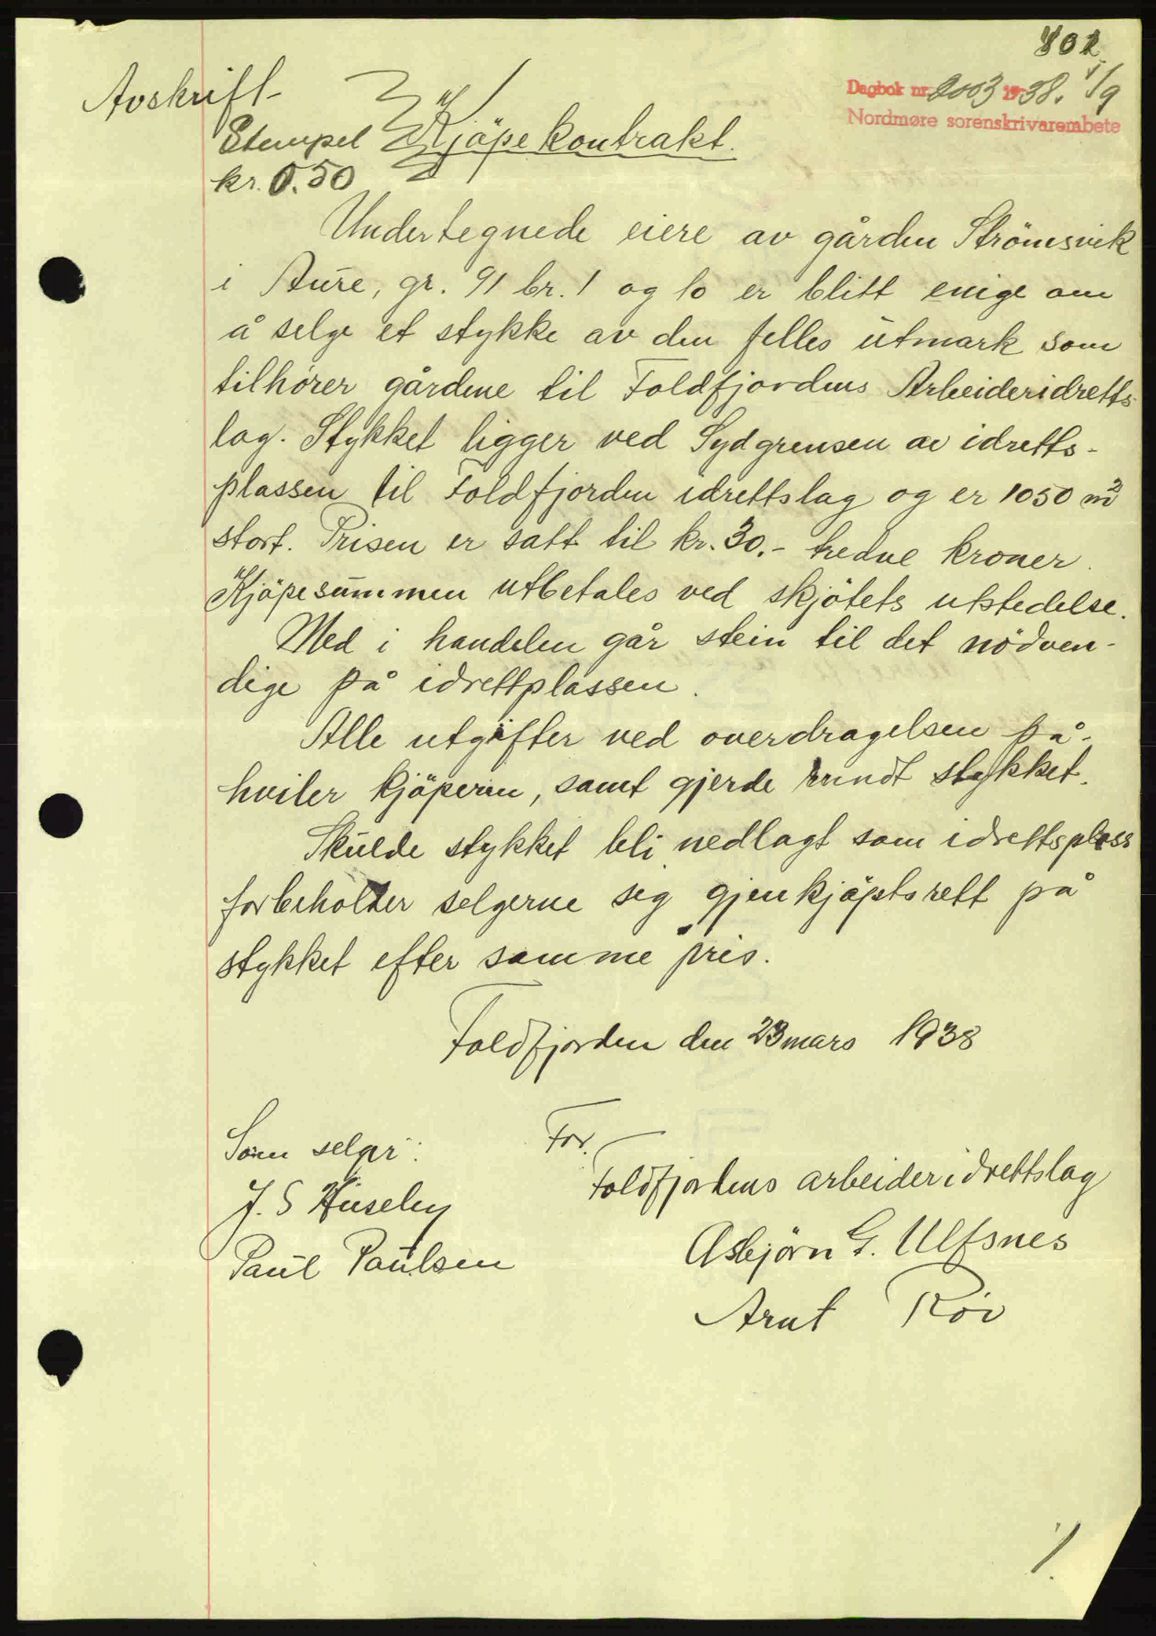 802
Avskrift
Dagbok nr. 2003 1938. 1/9
Nordmøre sorenskrivarembete
Stempel Kjöpekontrakt.
kr. 0.50
Undertegnede eiere av gården Strömsvik
i Aure, gr. 91 br. 1 og 10 er blitt enige om
å selge et stykke av den felles utmark som
tilhörer gårdene til Foldfjordens Arbeideridretts-
lag. Stykket ligger ved Sydgrensen av idretts-
plassen til Foldfjorden idrettslag og er 1050 m²
stort. Prisen er satt til kr. 30.- tredve kroner.
Kjöpesummen utbetales ved skjötets utstedelse.
Med i handelen går stein til det nödven-
dige på idrettplassen.
Alle utgifter ved overdragelsen på-
hviler kjöperen, samt gjerde rundt stykket.
Skulde stykket bli nedlagt som idrettsplass
forbeholder selgerne sig gjenkjöpsrett på
stykket efter samme pris.
Foldfjorden den 23 mars 1938
Som selger: For.
Foldfjordens arbeideridrettslag
J. S Huseby
Asbjörn G. Ulfsnes
Paul Paulsen
Arnt Röv